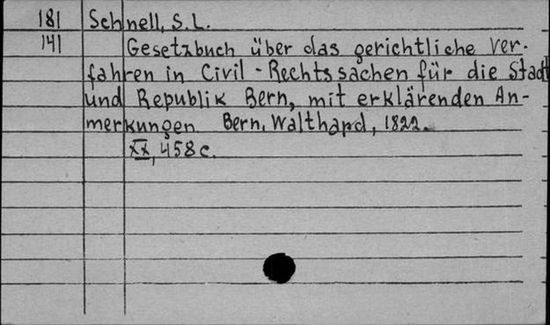 181 Schnell, S. L.
141 Gesetzbuch über das gerichtliche Ver-
fahren in Civil-Rechtssachen für die Stadt
und Republik Bern, mit erklärenden An-
merkungen Bern, Walthard, 1822.
XX, 458 c.